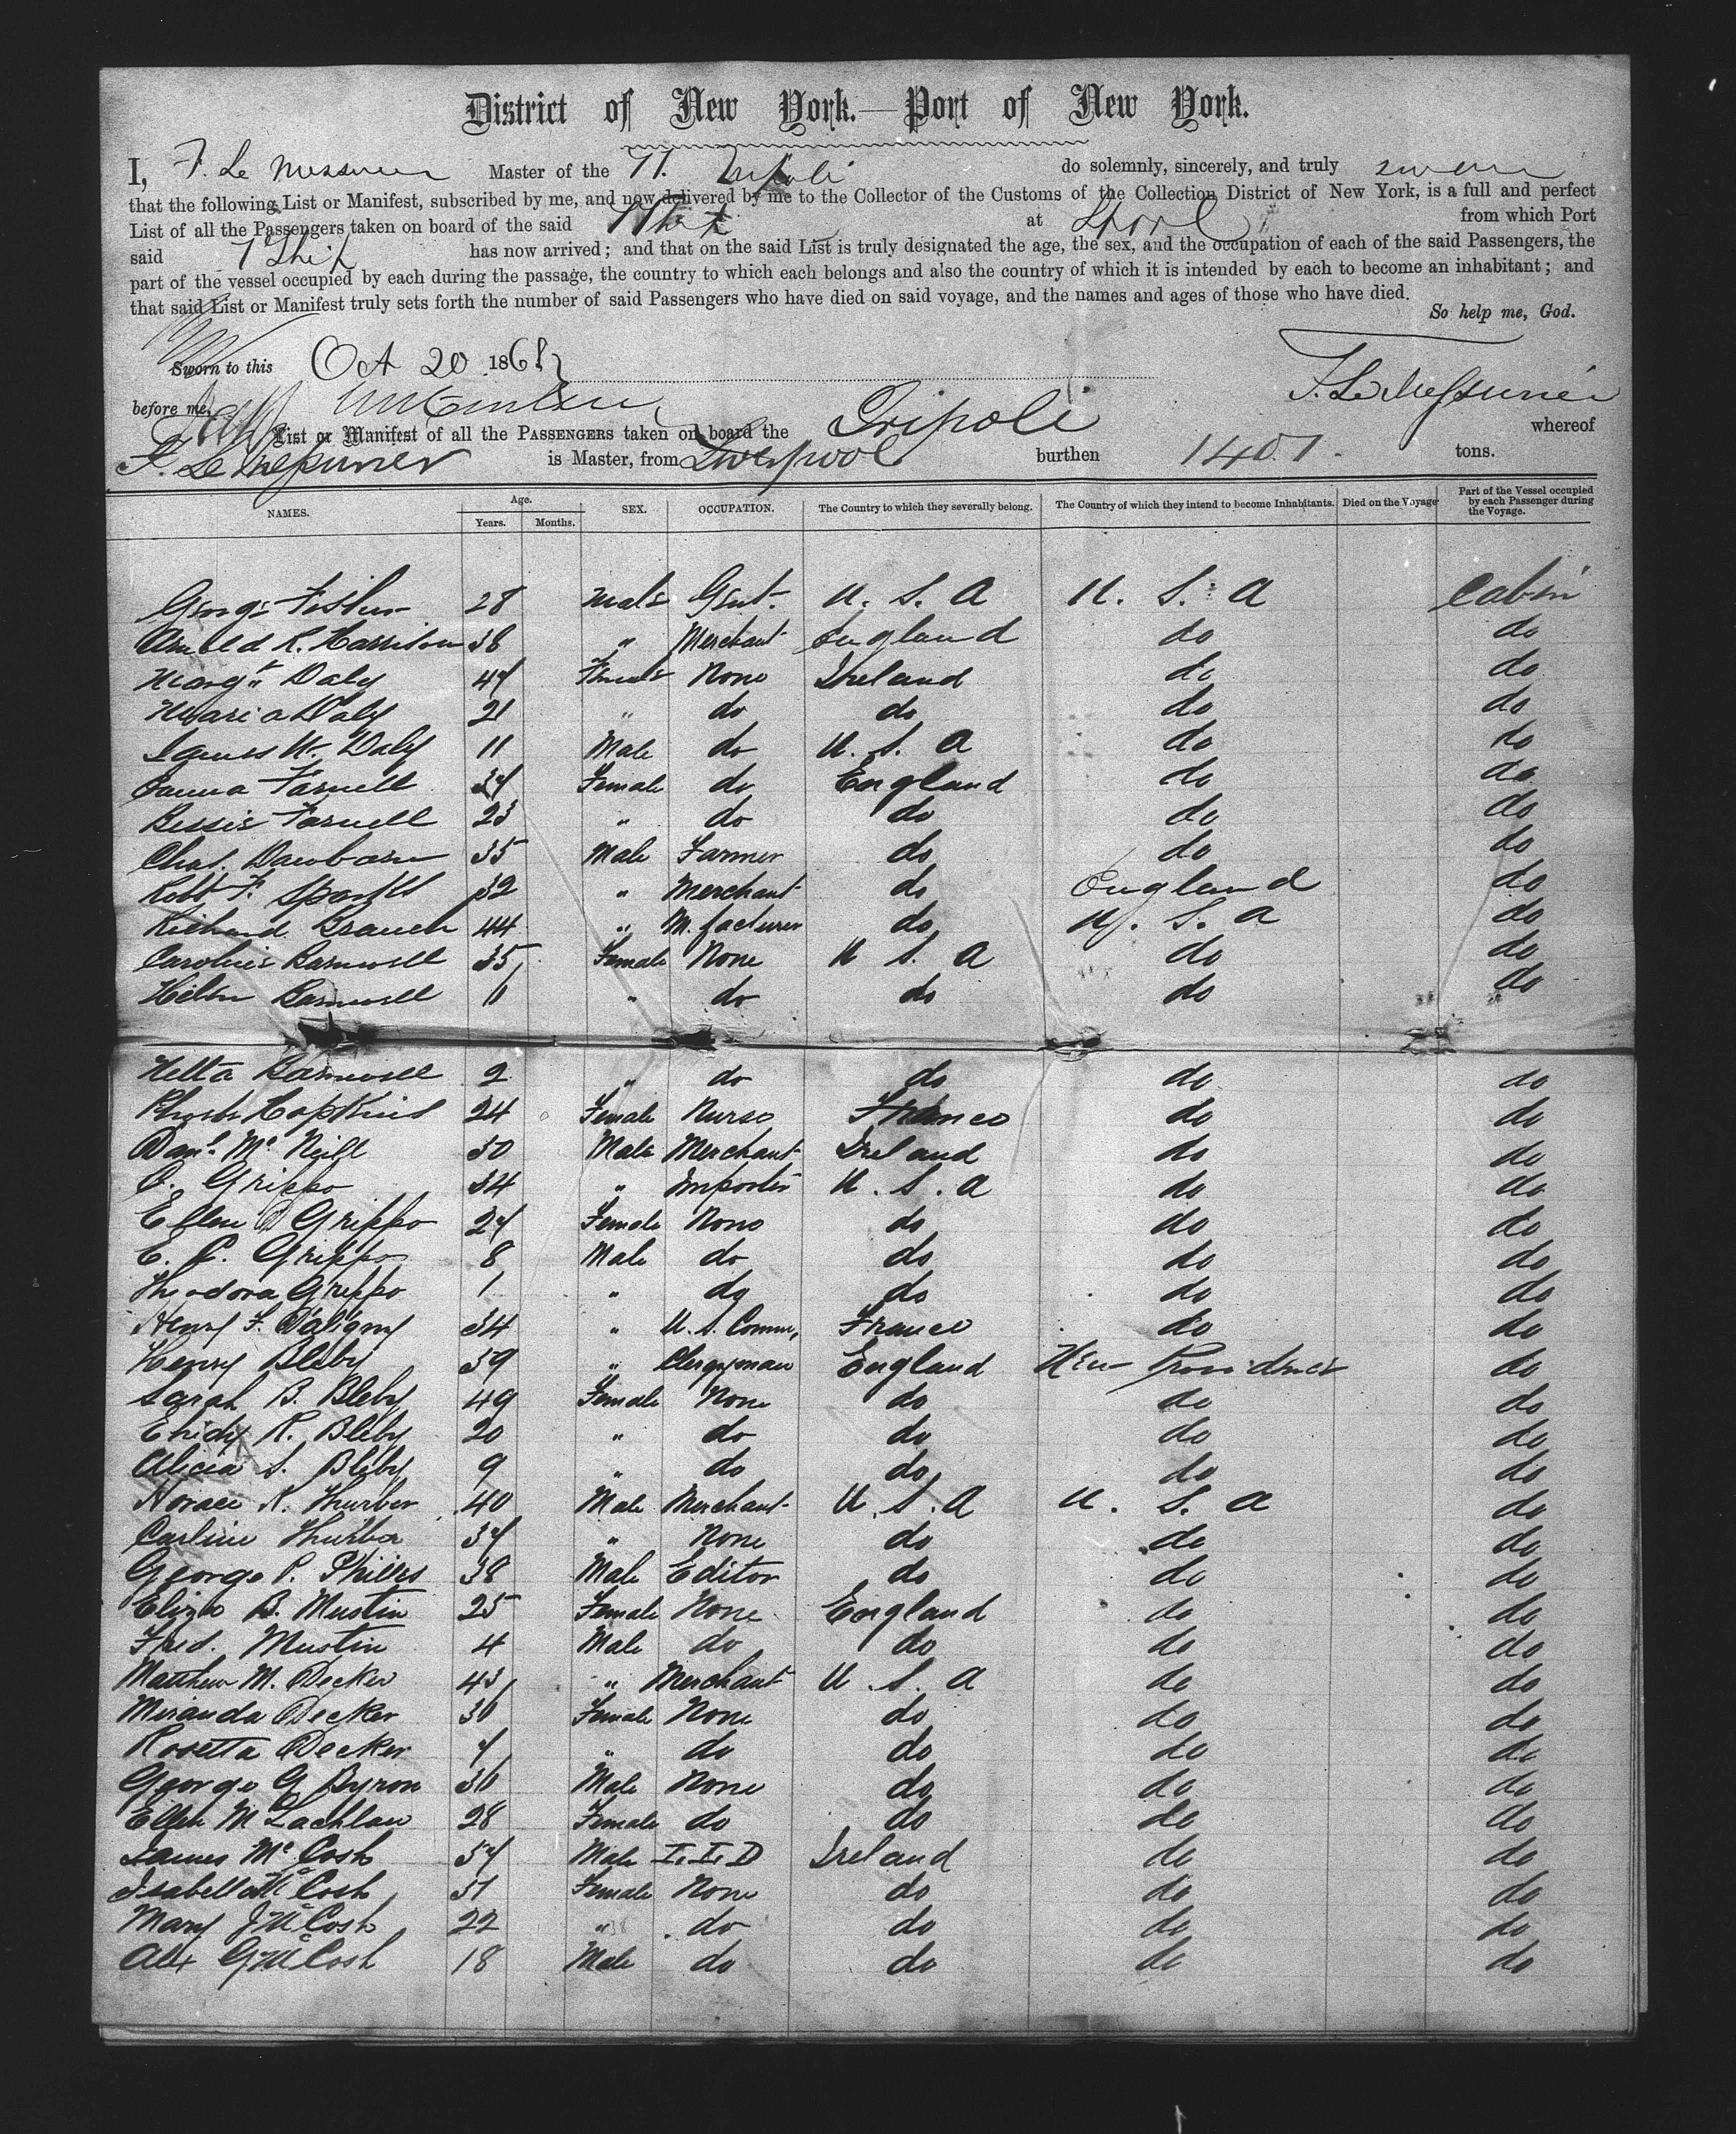 District of New York.—Port of New York.
I, F. Le Messurier Master of the Tripoli do solemnly, sincerely, and truly swear
that the following List or Manifest, subscribed by me, and now delivered by me to the Collector of the Customs of the Collection District of New York, is a full and perfect
List of all the Passengers taken on board of the said Ship at Lpool from which Port
said Ship has now arrived; and that on the said List is truly designated the age, the sex, and the occupation of each of the said Passengers, the
part of the vessel occupied by each during the passage, the country to which each belongs and also the country of which it is intended by each to become an inhabitant; and
that said List or Manifest truly sets forth the number of said Passengers who have died on said voyage, and the names and ages of those who have died.
So help me, God.
Sworn to this Oct 20 1868
F. Le Messurier
before me,
List or Manifest of all the PASSENGERS taken on board the Tripoli whereof
F. Le Messurier is Master, from Liverpool burthen 1401. tons.
NAMES. Age. Years. Months. SEX. OCCUPATION. The Country to which they severally belong. The Country of which they intend to become Inhabitants. Died on the Voyage Part of the Vessel occupied by each Passenger during the Voyage.
George Fisher 28 Male Gent. U. S. A U. S. A Cabin
Arnold R. Harrison 38 " Merchant England do do
Margt Daly 47 Female None Ireland do do
Maria Daly 21 " do do do do
James W. Daly 11 Male do U. S. A do do
Farnell 34 Female do England do do
Bessie Farnell 23 " do do do do
Chas. Dawbarn 35 Male Farmer do do do
Robt F. Sparks 32 " Merchant do England do
Richard Branch 44 " M. facturer do U. S. A do
Caroline Barnwell 35 Female None U S. A do do
Helen Barnwell 11 " do do do do
Hetta Barnwell 2 " do do do do
Phoebe Hopkins 24 Female Nurse France do do
Danl. Mc Neill 30 Male Merchant Ireland do do
C. Grippo 34 " Importer U. S. A do do
Ellen D Grippo 27 Female None do do do
E. C. Grippo 8 Male do do do do
Theodora Grippo 1 " do do do do
Henry F. Daligny 34 " U. S. Comm, France do do
Henry Bleby 59 " Clergyman England New Providence do
Sarah B. Bleby 49 Female None do do do
R. Bleby 20 " do do do do
Alicia S. Bleby 9 " do do do do
Horace K. Thurber 40 Male Merchant U. S. A U. S. A do
Carline Thurber 34 " None do do do
George P. Philes 38 Male Editor do do do
Eliza B. Mustin 25 Female None England do do
Fred. Mustin 4 Male do do do do
Matthew M. Decker 43 " Merchant U. S. A do do
Miranda Decker 36 Female None do do do
Rosetta Decker 7 " do do do do
George G Byron 36 Male None do do do
Ellen McLachlan 28 Female do do do do
James Mc Cosh 57 Male L. L. D Ireland do do
Isabella Mc Cosh 51 Female None do do do
Mary J Mc Cosh 22 " do do do do
Alex G Mc Cosh 18 Male do do do do